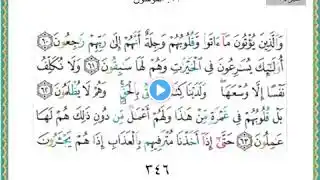 وَالَّذِينَ يُؤْتُونَ مَا ءَاتَوا وَّقُلُوبُهُمْ وَجِلَةٌ أَنَّهُمْ إِلَىٰ رَبِّهِمْ رَاجِعُونَ ٦٠
أُولَٰئِكَ يُسَارِعُونَ فِي الْخَيْرَاتِ وَهُمْ لَهَا سَابِقُونَ ٦١ وَلَا نُكَلِّفُ
نَفْسًا إِلَّا وُسْعَهَا وَلَدَيْنَا كِتَابٌ بِالْحَقِّ وَهُمْ لَا يُظْلَمُونَ ٦٢
بَلْ قُلُوبُهُمْ فِي غَمْرَةٍ مِّنْ هَٰذَا وَلَهُمْ أَعْمَالٌ مِّن دُونِ ذَٰلِكَ هُمْ لَهَا
عَامِلُونَ ٦٣ حَتَّىٰ إِذَا أَخَذْنَا مُتْرَفِيهِم بِالْعَذَابِ إِذَا هُمْ يَجْأَرُونَ
٣٤٦